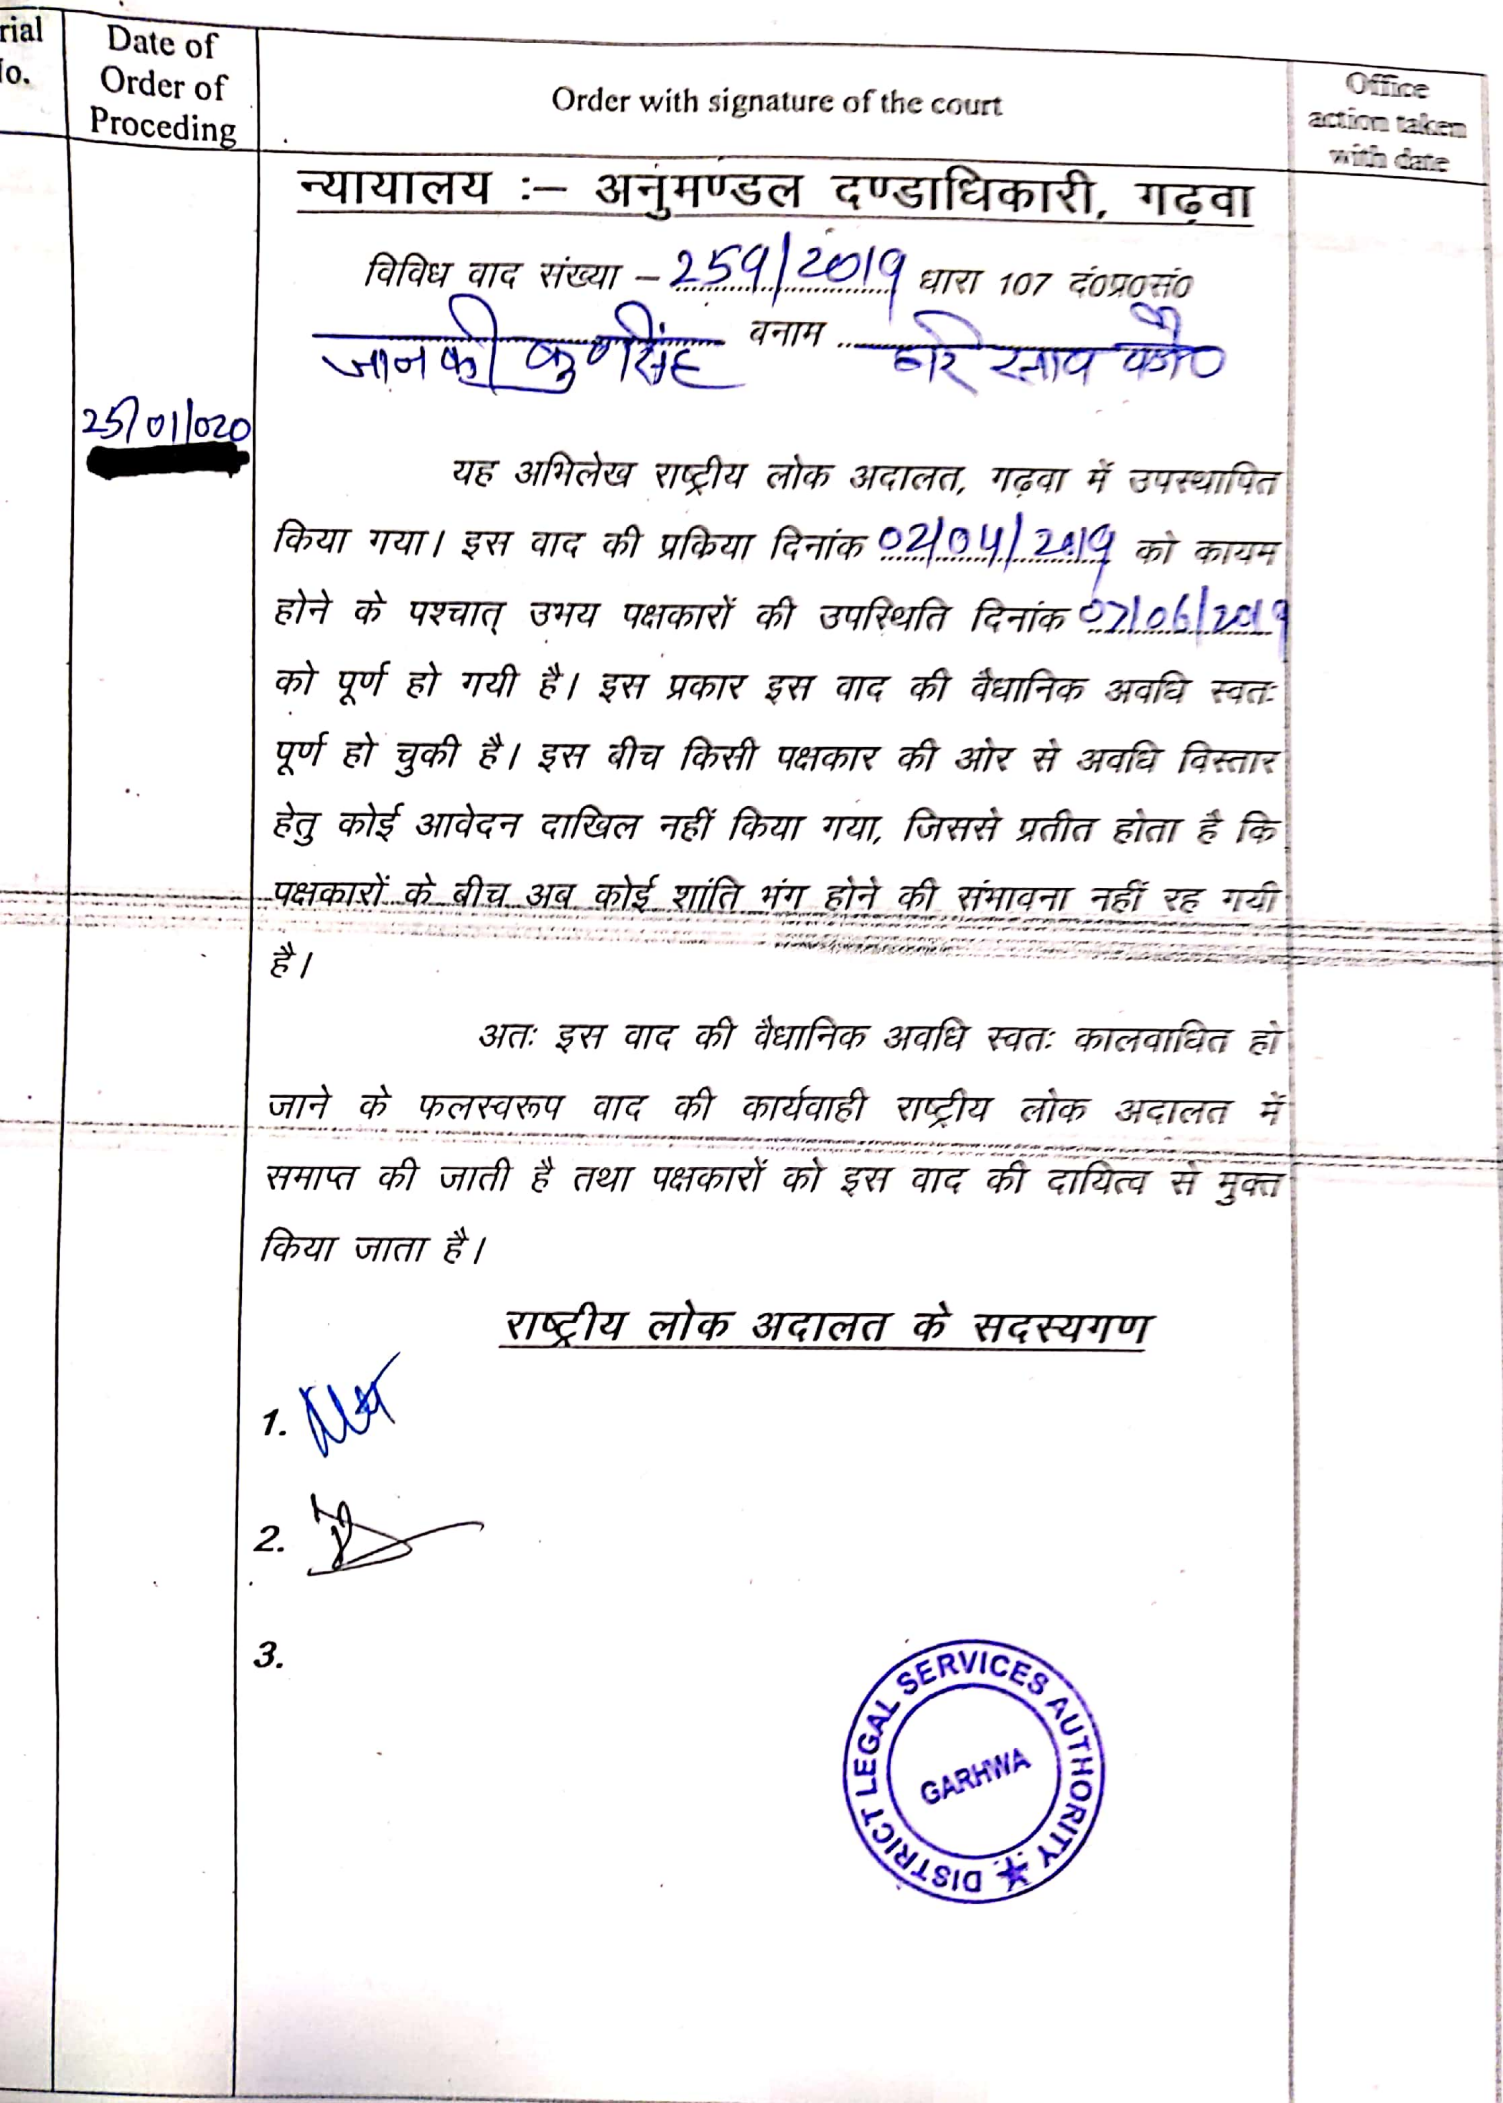 rial
Date of
Order of
Proceding
Order with signature of the court
Office
action taken
with date
न्यायालय :– अनुमण्डल दण्डाधिकारी, गढ़वा
विविध वाद संख्या – 259/2019 धारा 107 दं०प्र०सं०
जानकी कु० सिंह बनाम हरि साव
25/01/020
यह अभिलेख राष्ट्रीय लोक अदालत, गढ़वा में उपस्थापित
किया गया। इस वाद की प्रकिया दिनांक 02/04/2019 को कायम
होने के पश्चात् उभय पक्षकारों की उपस्थिति दिनांक 07/06/2019
को पूर्ण हो गयी है। इस प्रकार इस वाद की वैधानिक अवधि स्वतः
पूर्ण हो चुकी है। इस बीच किसी पक्षकार की ओर से अवधि विस्तार
हेतु कोई आवेदन दाखिल नहीं किया गया, जिससे प्रतीत होता है कि
पक्षकारों के बीच अब कोई शांति भंग होने की संभावना नहीं रह गयी
है।
अतः इस वाद की वैधानिक अवधि स्वतः कालवाधित हो
जाने के फलस्वरूप वाद की कार्यवाही राष्ट्रीय लोक अदालत में
समाप्त की जाती है तथा पक्षकारों को इस वाद की दायित्व से मुक्त
किया जाता है।
राष्ट्रीय लोक अदालत के सदस्यगण
1.
2.
3.
DISTRICT LEGAL SERVICES AUTHORITY
GARHWA